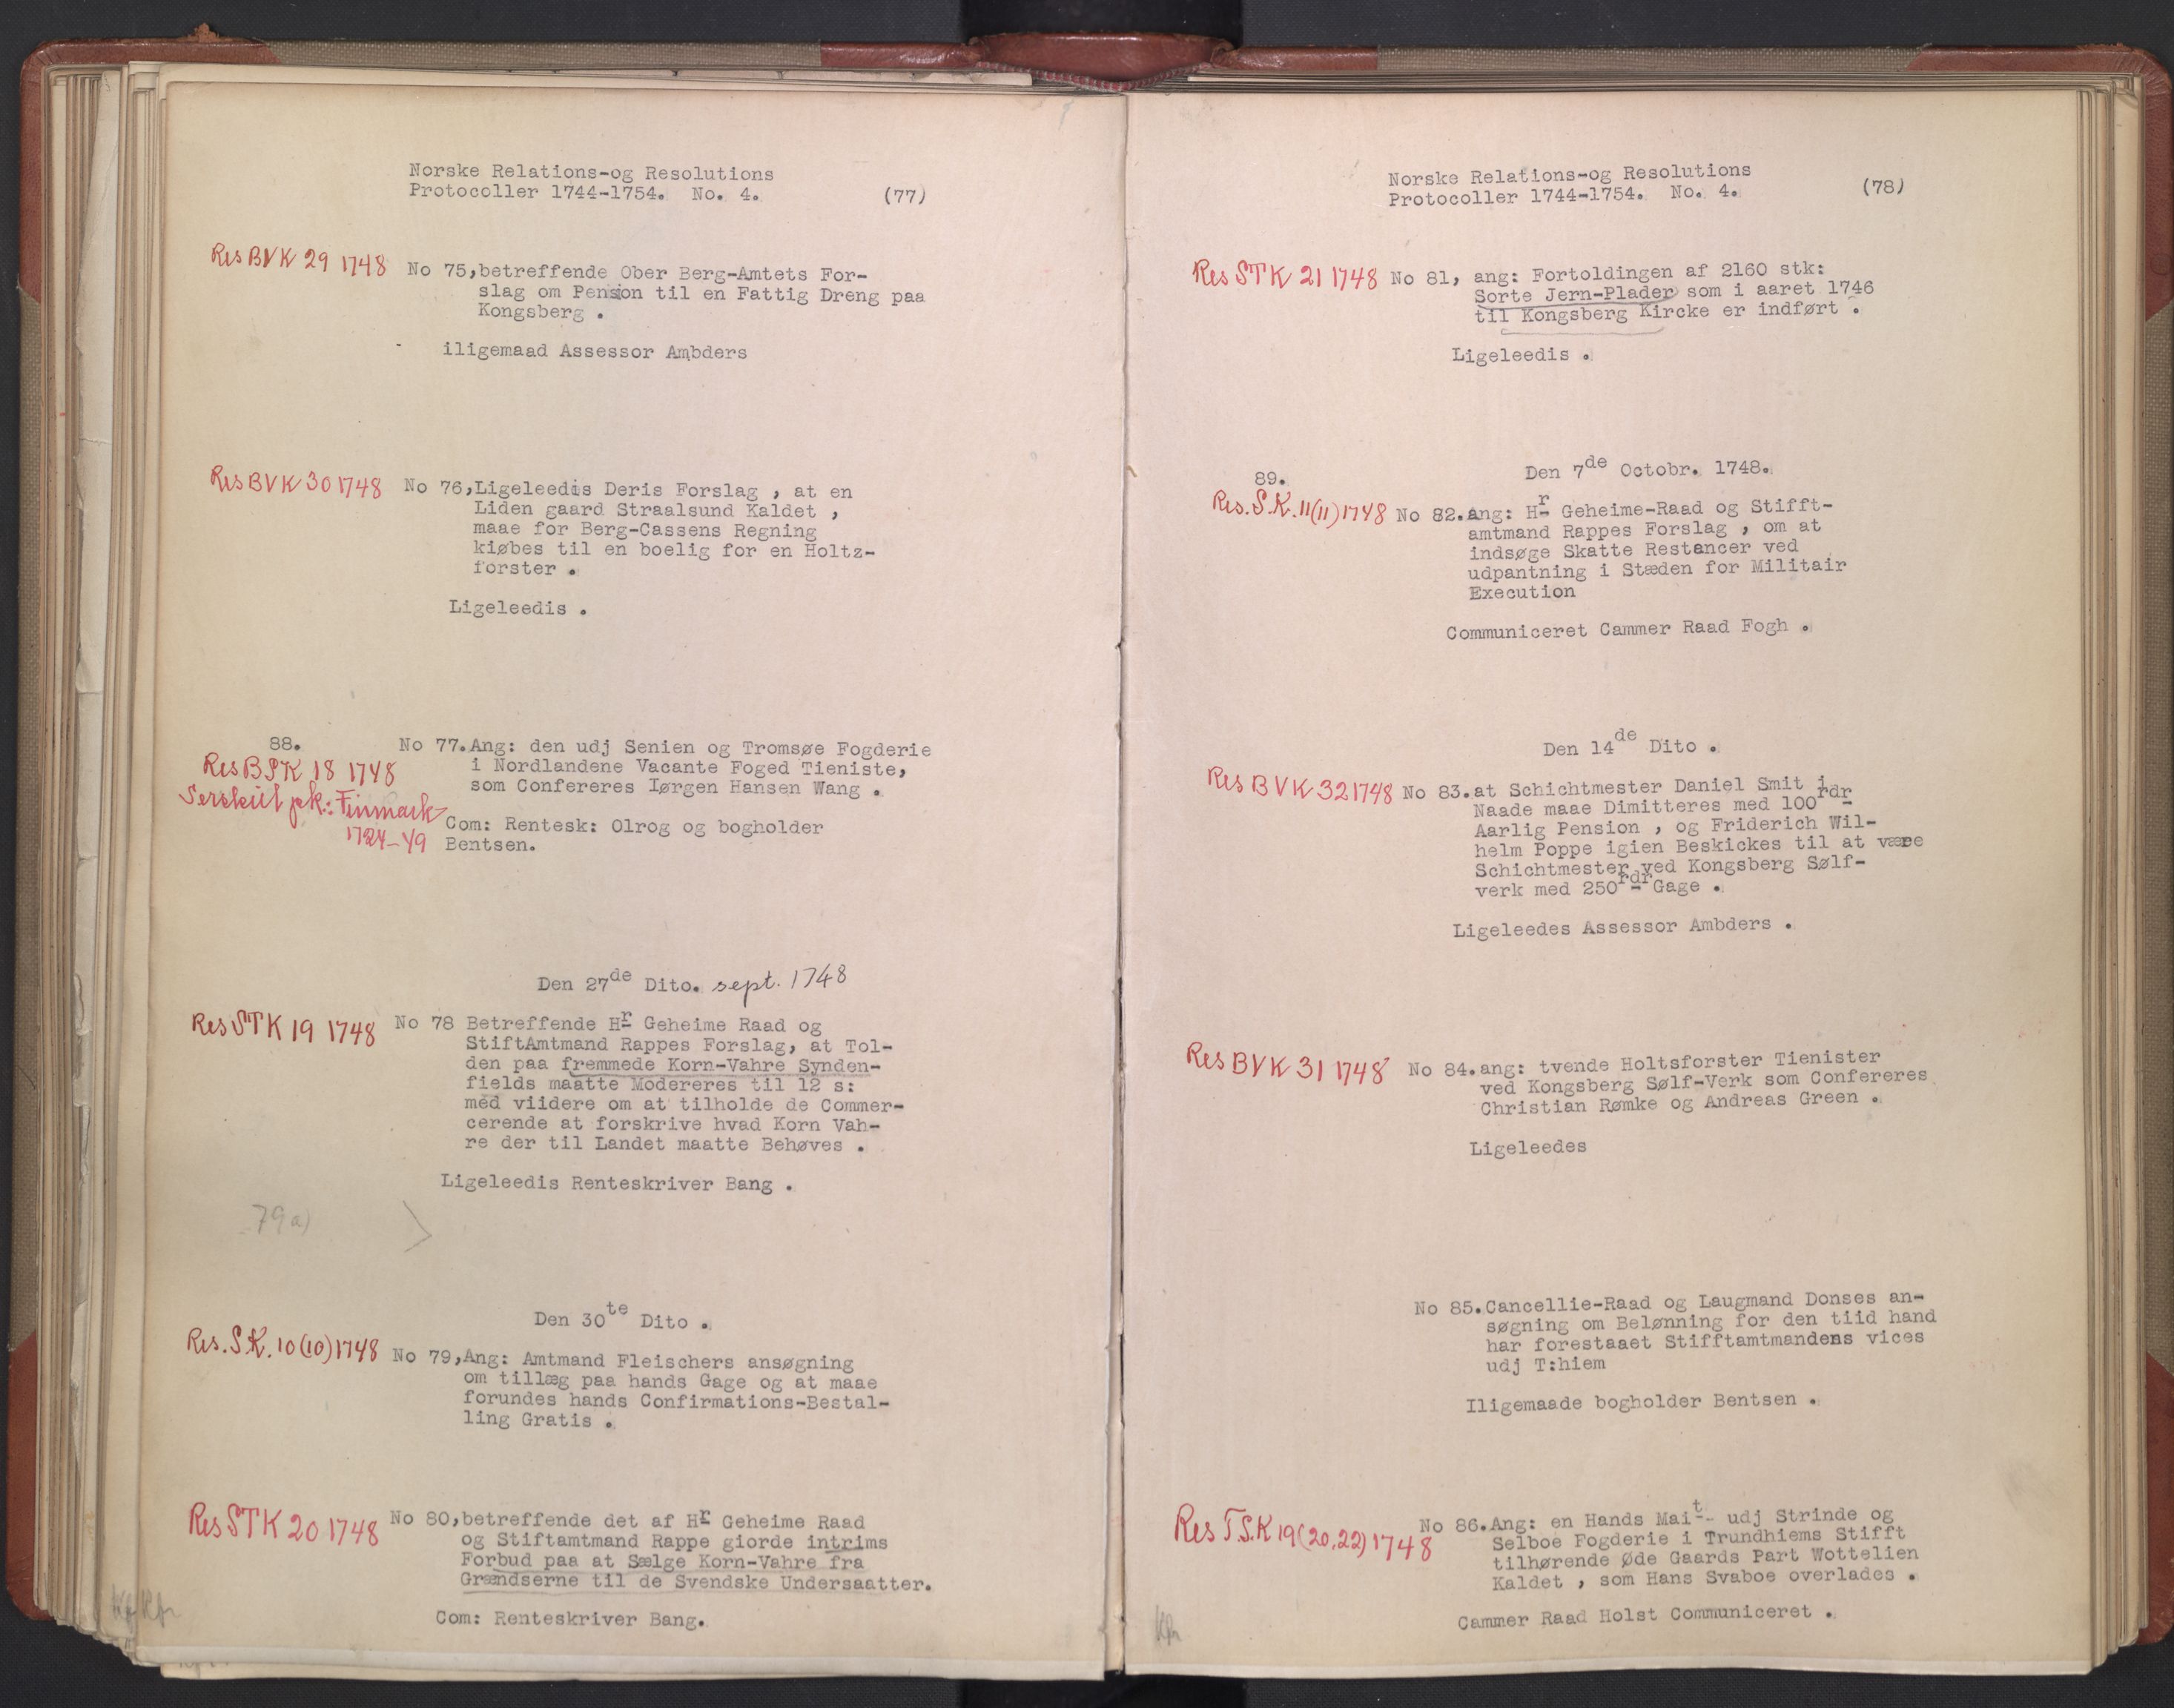 Norske Relations-og Resolutions
Protocoller 1744-1754. No. 4. (77)
Res BVK 29 1748 No 75,betreffende Ober Berg-Amtets For-
slag om Pension til en Fattig Dreng paa
Kongsberg .
iligemaad Assessor Ambders
Res BVK 30 1748 No 76,Ligeleedis Deris Forslag , at en
Liden gaard Straalsund Kaldet ,
maae for Berg-Cassens Regning
kiøbes til en boelig for en Holtz-
forster .
Ligeleedis .
88. No 77.Ang: den udj Senien og Tromsøe Fogderie
Res BSK 18 1748 i Nordlandene Vacante Foged Tieniste,
som Confereres Iørgen Hansen Wang .
Serskilt pk.: Finmark
1724-49
Com: Rentesk: Olrog og bogholder
Bentsen.
Den 27de Dito. sept. 1748
Res STK 19 1748 No 78 Betreffende Hr Geheime Raad og
StiftAmtmand Rappes Forslag, at Tol-
den paa fremmede Korn-Vahre Synden-
fields maatte Modereres til 12 s:
med viidere om at tilholde de Commer-
cerende at forskrive hvad Korn Vah-
re der til Landet maatte Behøves .
Ligeleedis Renteskriver Bang .
79 a)
Den 30te Dito .
Res. S.K. 10(10)1748 No 79,Ang: Amtmand Fleischers ansøgning
om tillæg paa hands Gage og at maae
forundes hands Confirmations-Bestal-
ling Gratis .
Res STK 20 1748 No 80,betreffende det af Hr Geheime Raad
og Stiftamtmand Rappe giorde intrims
Forbud paa at Sælge Korn-Vahre fra
Grændserne til de Svendske Undersaatter.
Com: Renteskriver Bang.
Norske Relations-og Resolutions
Protocoller 1744-1754. No. 4. (78)
Res STK 21 1748 No 81, ang: Fortoldingen af 2160 stk:
Sorte Jern-Plader som i aaret 1746
til Kongsberg Kircke er indført .
Ligeleedis .
89. Den 7de Octobr. 1748.
Res. S.K. 11(11)1748 No 82.ang: Hr Geheime-Raad og Stifft-
amtmand Rappes Forslag , om at
indsøge Skatte Restancer ved
udpantning i Stæden for Militair
Execution
Communiceret Cammer Raad Fogh .
Den 14de Dito .
Res BVK 32 1748 No 83.at Schichtmester Daniel Smit i
Naade maae Dimitteres med 100rdr
Aarlig Pension , og Friderich Wil-
helm Poppe igien Beskickes til at være
Schichtmester ved Kongsberg Sølf-
verk med 250rdr Gage .
Ligeleedes Assessor Ambders .
Res BVK 31 1748 No 84.ang: tvende Holtsforster Tienister
ved Kongsberg Sølf-Verk som Confereres
Christian Rømke og Andreas Green .
Ligeleedes
No 85.Cancellie-Raad og Laugmand Donses an-
søgning om Belønning for den tiid hand
har forestaaet Stifftamtmandens vices
udj T:hiem
Iligemaade bogholder Bentsen .
Res T.S.K 19(20,22)1748 No 86.Ang: en Hands Mait udj Strinde og
Selboe Fogderie i Trundhiems Stifft
tilhørende Øde Gaards Part Wottelien
Kaldet , som Hans Svaboe overlades .
Cammer Raad Holst Communiceret .